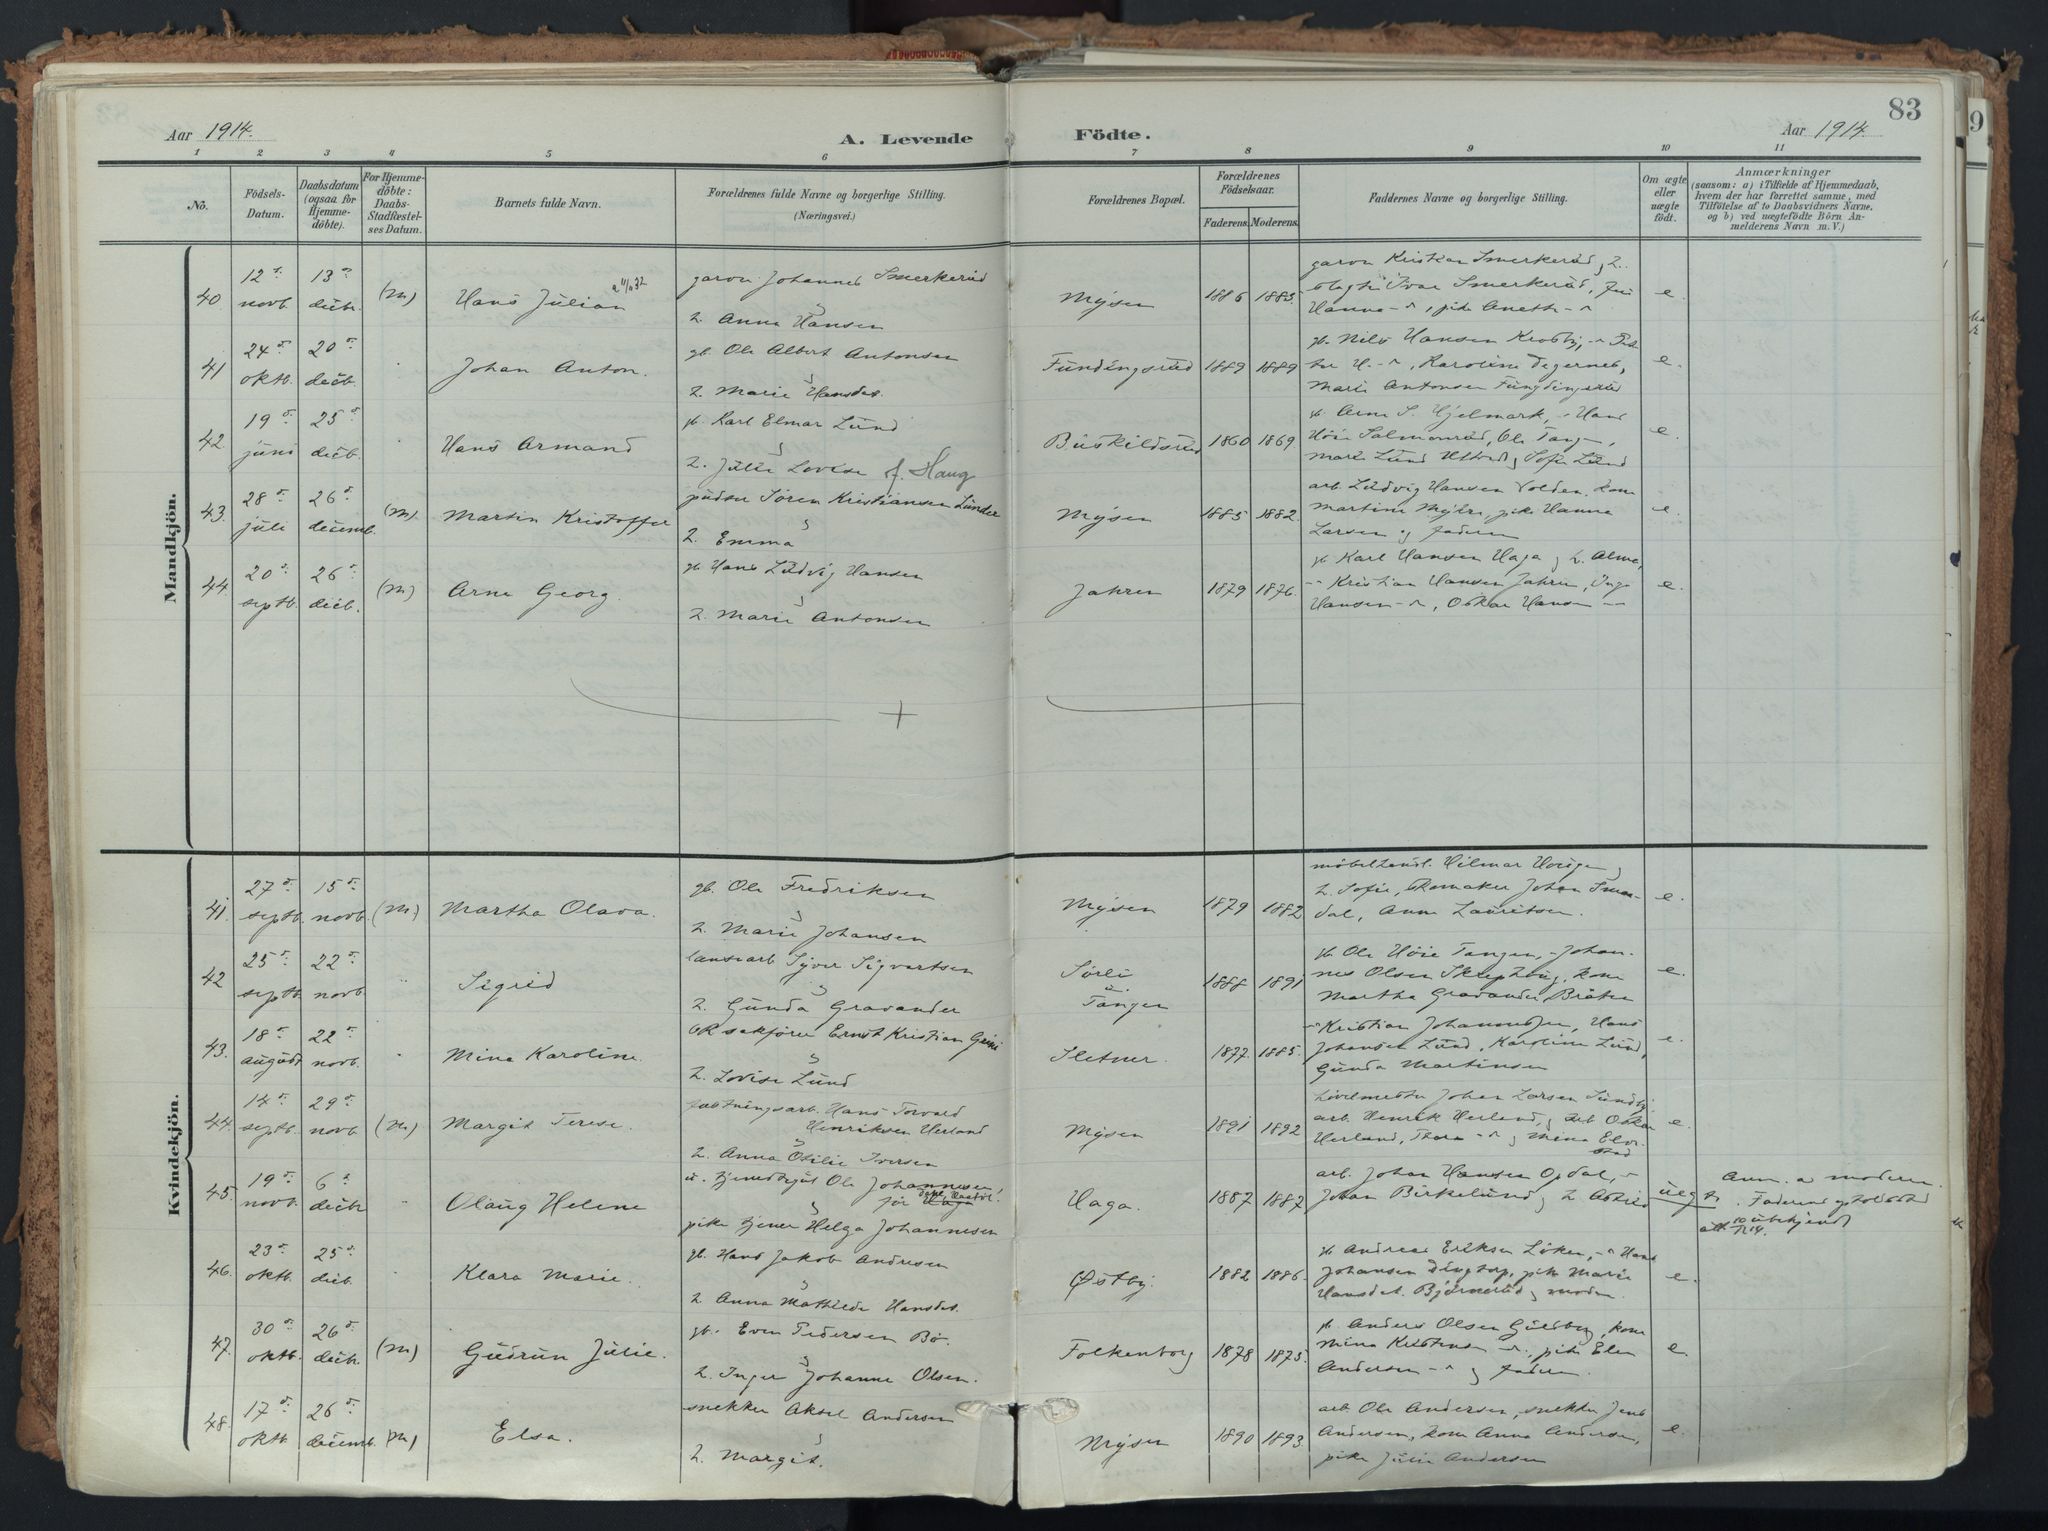 83
Aar 1914.
A. Levende Födte.
Aar 1914.
1 2 3 4 5 6 7 8 9 10 11
No.
Födsels-Datum.
Daabsdatum (ogsaa for Hjemmedöbte).
For Hjemmedöbte: Daabs-Stadfæstelses Datum.
Barnets fulde Navn.
Forældrenes fulde Navne og borgerlige Stilling.
(Næringsvei.)
Forældrenes Bopæl.
Forældrenes Födselsaar.
Faderens. Moderens.
Faddernes Navne og borgerlige Stilling.
Om ægte eller uægte födt.
Anmærkninger
(saasom: a) i Tilfælde af Hjemmedaab, hvem der har forrettet samme, med Tilföielse af to Daabsvidners Navne, og b) ved uægtefödte Börn Anmelderens Navn m. V.)
Mandkjön.
40 12 novb. 13 decbr. (M) Hans Julian
garver Johannes Smerkerud
h. Anna Hansen
Mysen 1886 1885
garver Kristian Smerkerud, h.
Ivar Smerkerud,
Hanna, pike Anette
e.
41 24 oktb. 20 decb. Johan Anton.
gb. Ole Albert Antonsen
h. Marie Hansdat.
Fundingsrud 1889 1889
gb. Nils Hansen Krosby,
Karoline Degernes,
Marie Antonsen Fundingsrud
e.
42. 19 juni 25 decb. Hans Armand
gb. Karl Elmar Lund
h. Julie Lovise f. Haug
Buskildsrud 1860 1869
gb. Arne S. Hjelmark, Hans
Höie Salmonrud, Ole Tangen,
Marie Lund og Sofie Lund
e.
43. 28 juli 26 decemb. (M) Martin Kristoffer
pudser Sören Kristiansen Lunder
h. Emma
Mysen 1885 1882.
arb. Ludvig Hansen Volden, kone
Martine Myhre, pike Hanna
Larsen og faderen
e.
44. 20 septb. 26 decb. (M) Arne Georg.
gb. Hans Ludvig Hansen
h. Marie Antonsen
Jahren 1879 1876.
gb. Karl Hansen Haga og h. Alma,
Kristian Hansen Jahren, Inga
Hansen, Oskar Hansen
e.
Kvindekjön.
41. 27 septb. 15 novb. (M) Martha Olava.
gb. Ole Fredriksen
h. Marie Johansen
Mysen 1879 1882
möbelhandl. Hilmar
h. Sofie, skomaker Johan
Anna Lauritsen.
e.
42 25 septb. 22 novb. Sigrid
Syver Sigvartsen
h. Gunda Gravander
Sörli u. Tangen 1888 1891
gb. Ole Höie Tangen, Johan-
nes Olsen Skrephaug, kone
Martha Gravander Bråten
e.
43. 18 august 22 novb. Mina Karolin.
OR sakförer Ernst Kristian
h. Lovise Lund
Sletner. 1877 1885.
Kristian Johannessen, Hans
Johansen Lund, Karoline Lund,
Gunda Martinsen
e.
44. 14 septb. 29 novb. (M) Margit Terese.
fæstningsarb. Hans Torvald
Henriksen Herland
h. Anna Otilie Iversen
Mysen 1891 1892
Johan Larsen Sundby,
arb. Henrik Herland, og arb Oskar
Herland, Thora og Mina
e.
45. 19 novb. 6 decbr Olaug Helene
u. tjenestegut Ole Johannesen!
pike tjener Helga Johannesen
Haga. 1887 1887
arb. Johan Hansen Opdal,
Johan Birkelund og h. Astrid
uegt.
Anm. a moderen.
Faderens opholdssted
ubekjendt
46. 23 oktb. 25 decb. Klara Marie.
gb. Hans Jakob Andresen
h. Anna Mathilde Hansdat.
Østby 1882 1886.
gb Andreas Eriksen Löken, Hans
Johansen Dingtorp, pike Marie
Hansdat. Björnerud og moderen.
e.
47. 30 oktb. 26 decbr. (M) Gudrun Julie.
gb. Even Pedersen Bö.
h. Inger Johanne Olsen.
Folkenborg 1878 1875.
gb. Anders Olsen Guldberg, kone
Mina Kristensen, pike Elen
Andersen og faderen.
e.
48. 17 oktb. 26 decemb. (M) Elsa.
snekker Aksel Andersen
h. Margit.
Mysen 1890 1893.
arb Ole Andersen, snekker Jens
Andersen, kone Anna Andersen,
pike Julie Andersen
e.